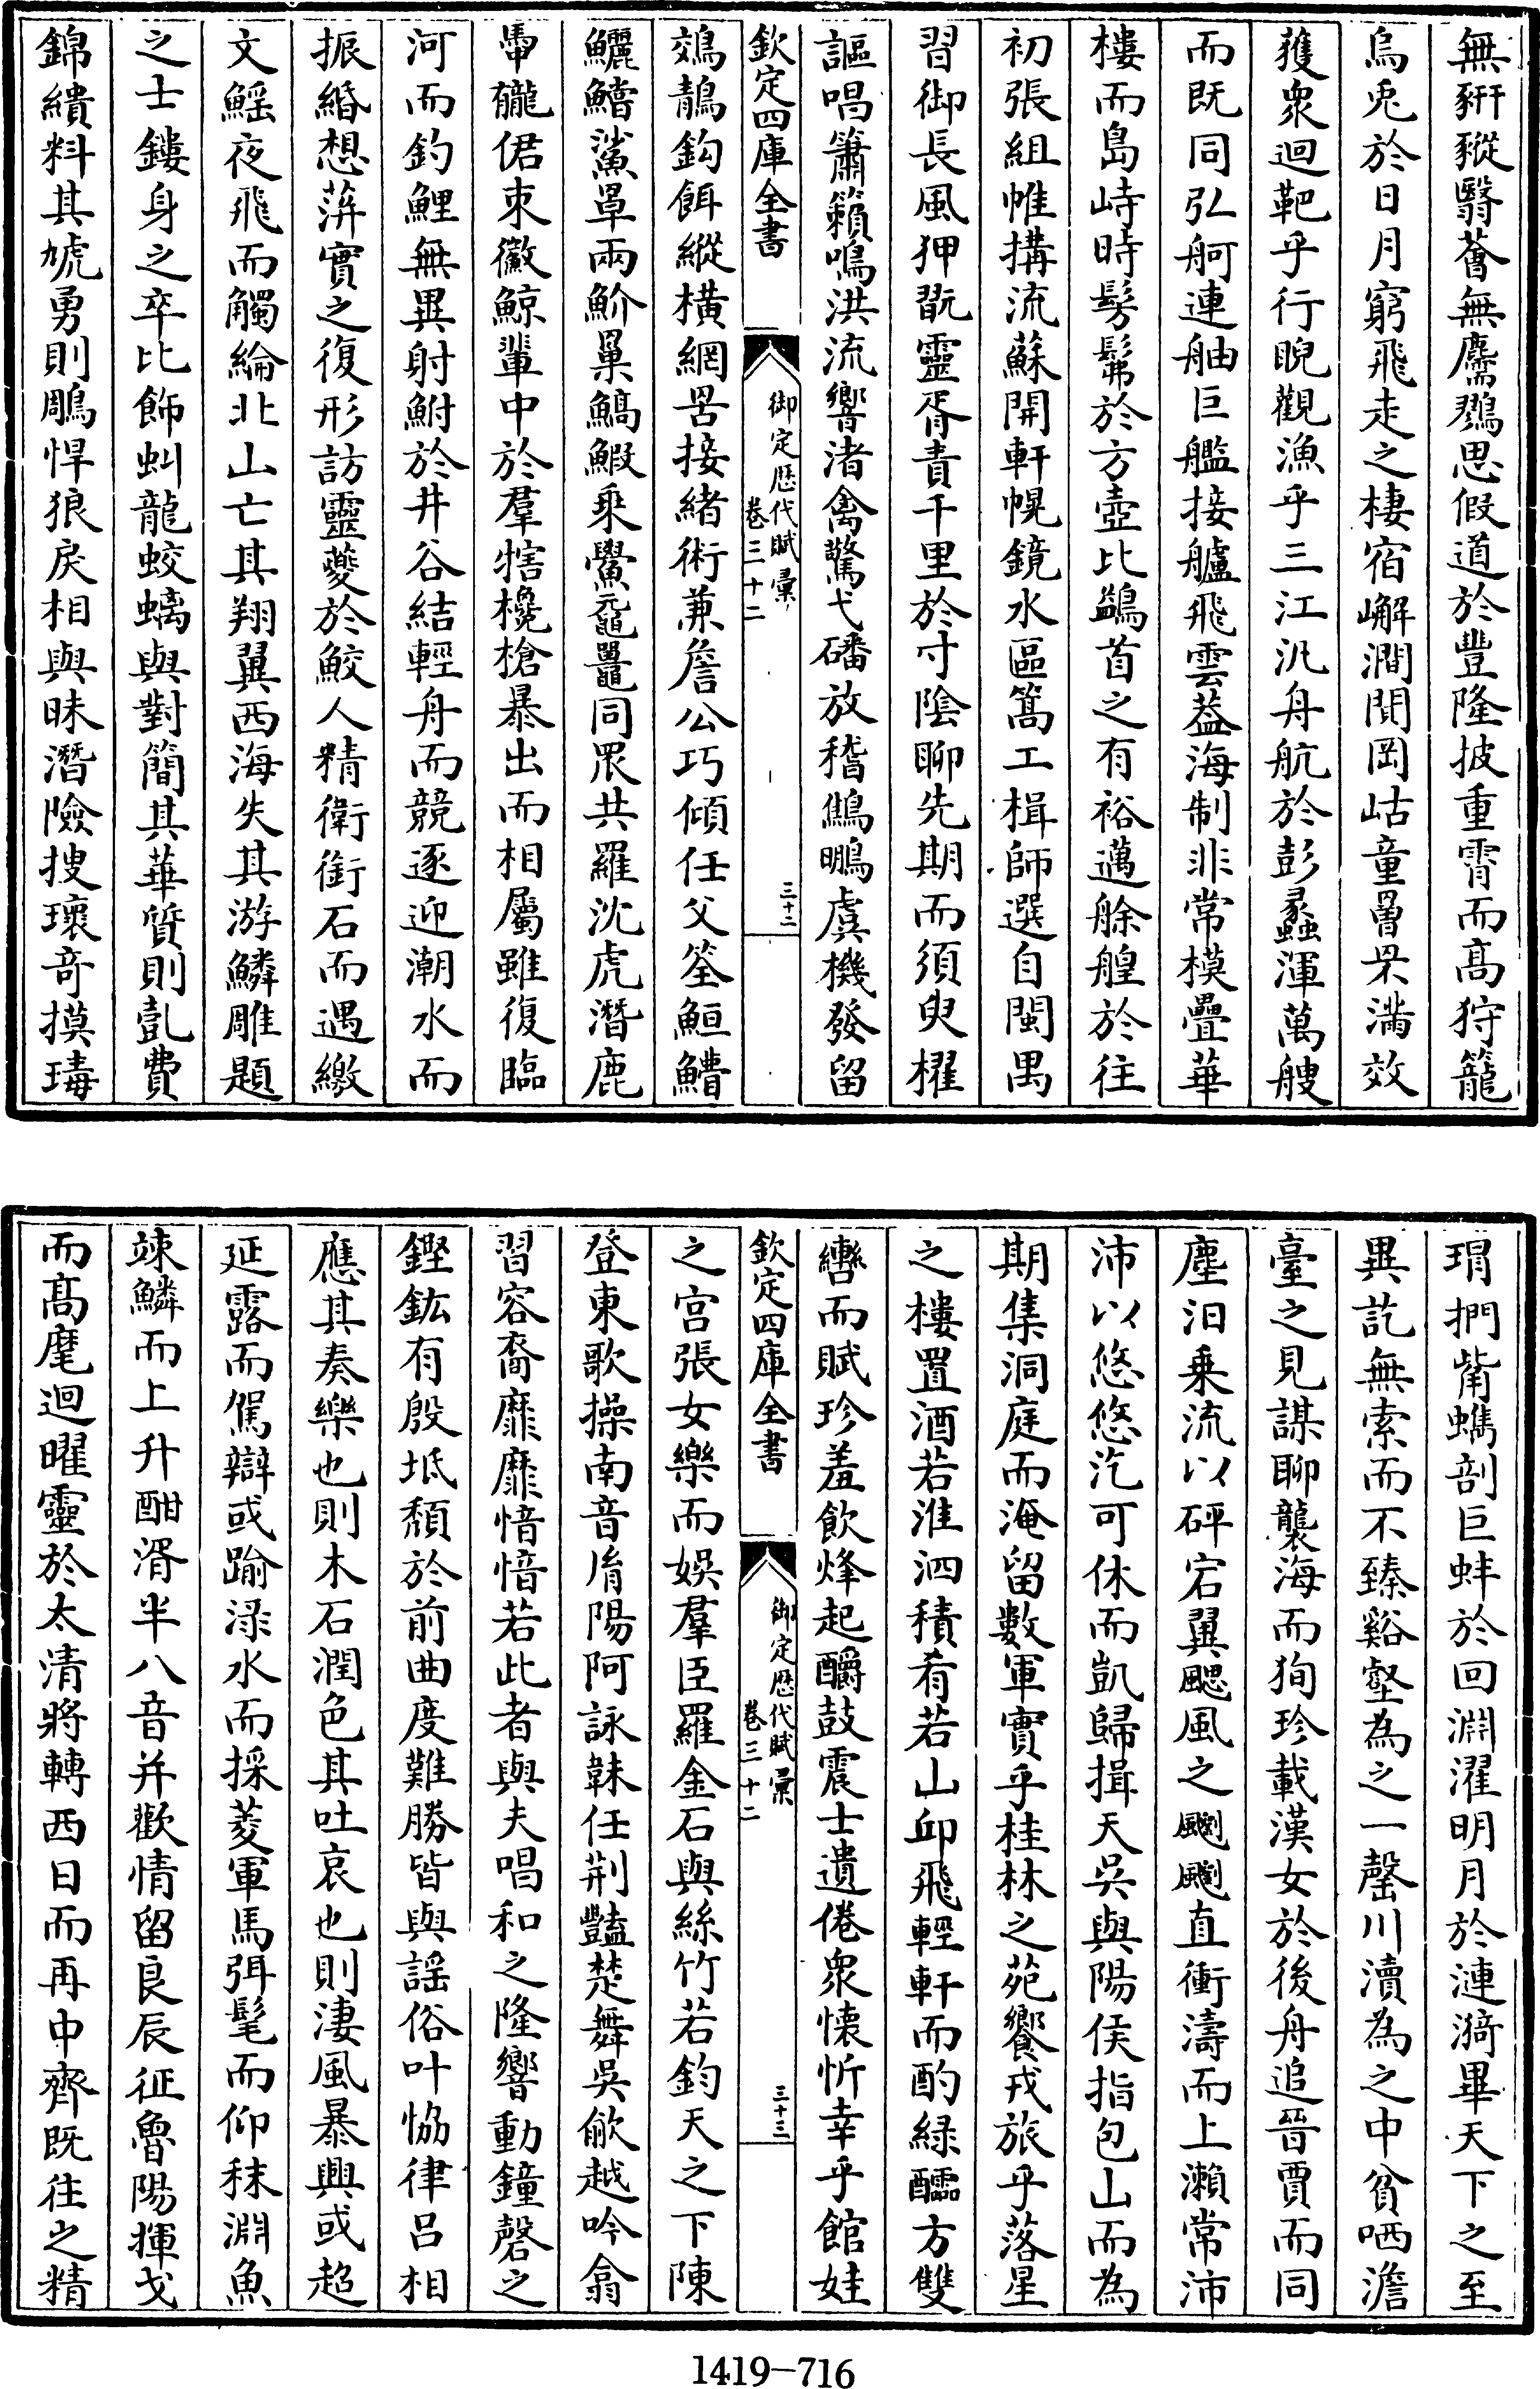 無豜豵翳薈無麡鷚思假道於豐隆披重霄而髙狩籠
烏兎於日月窮飛走之棲宿嶰澗閴岡岵童罾罘滿效
獲衆迴靶乎行睨觀漁乎三江汎舟航於彭蠡渾萬艘
而既同弘舸連舳巨艦接艫飛雲葢海制非常模疊華
樓而島峙時髣髴於方壺比鷁首之有裕邁艅艎於往
初張組帷搆流蘇開軒幌鏡水區篙工楫師選自閩禺
習御長風狎翫靈胥責千里於寸隂聊先期而須臾櫂
謳唱簫籟鳴洪流響渚禽驚弋磻放稽鷦䳟虞機發留
鵁鶄鈎餌縱横網罟接緒術兼詹公巧傾任父筌䱎鱨
鱺鱨鯊罩兩魪罺鰝鰕乗鱟黿鼉同罛共羅沈虎潛鹿
馽龓僒束徽鯨輩中於羣犗欃槍暴出而相屬雖復臨
河而釣鯉無異射鮒於井谷結輕舟而競逐迎潮水而
振緡想萍實之復形訪靈夔於鮫人精衛銜石而遇繳
文鰩夜飛而觸綸北山亡其翔翼西海失其游鱗雕題
之士鏤身之卒比飾虯龍蛟螭與對簡其華質則亄費
錦繢料其虓勇則鵰悍狼戾相與昧潛險捜瓌竒摸瑇
欽定四庫全書
御定歴代賦彙
卷三十二
三十二
瑁捫觜蠵剖巨蚌於回淵濯明月於漣漪畢天下之至
異訖無索而不臻谿壑為之一罄川瀆為之中貧哂澹
臺之見謀聊襲海而狥珍載漢女於後舟追晉賈而同
塵汩乗流以砰宕翼颸風之䬟䬟直衝濤而上瀨常沛
沛以悠悠汔可休而凱歸揖天吳與陽侯指包山而為
期集洞庭而淹留數軍實乎桂林之苑饗戎旅乎落星
之樓置酒若淮泗積肴若山邱飛輕軒而酌緑醽方雙
轡而賦珍羞飲烽起釂鼓震士遺倦衆懐忻幸乎館娃
之宫張女樂而娛羣臣羅金石與絲竹若鈞天之下陳
登東歌操南音𦙍陽阿詠韎任荆豔楚舞吳歈越吟翕
習容裔靡靡愔愔若此者與夫唱和之隆響動鐘磬之
鏗鈜有殷坻頽於前曲度難勝皆與謡俗叶恊律吕相
應其奏樂也則木石潤色其吐哀也則淒風暴興或超
延露而駕辯或踰淥水而採菱軍馬弭髦而仰秣淵魚
竦鱗而上升酣湑半八音并歡情留良辰征魯陽揮戈
而髙麾迴曜靈於太清將轉西日而再中齊既往之精
欽定四庫全書
御定歴代賦彙
卷三十二
三十三
1419—716